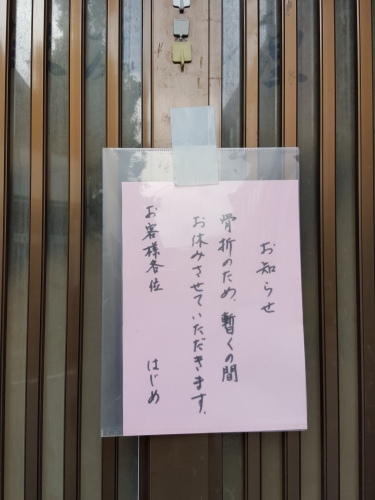 お知らせ
骨折のため、暫くの間
お休みさせていただきます。
お客様各位　はじめ